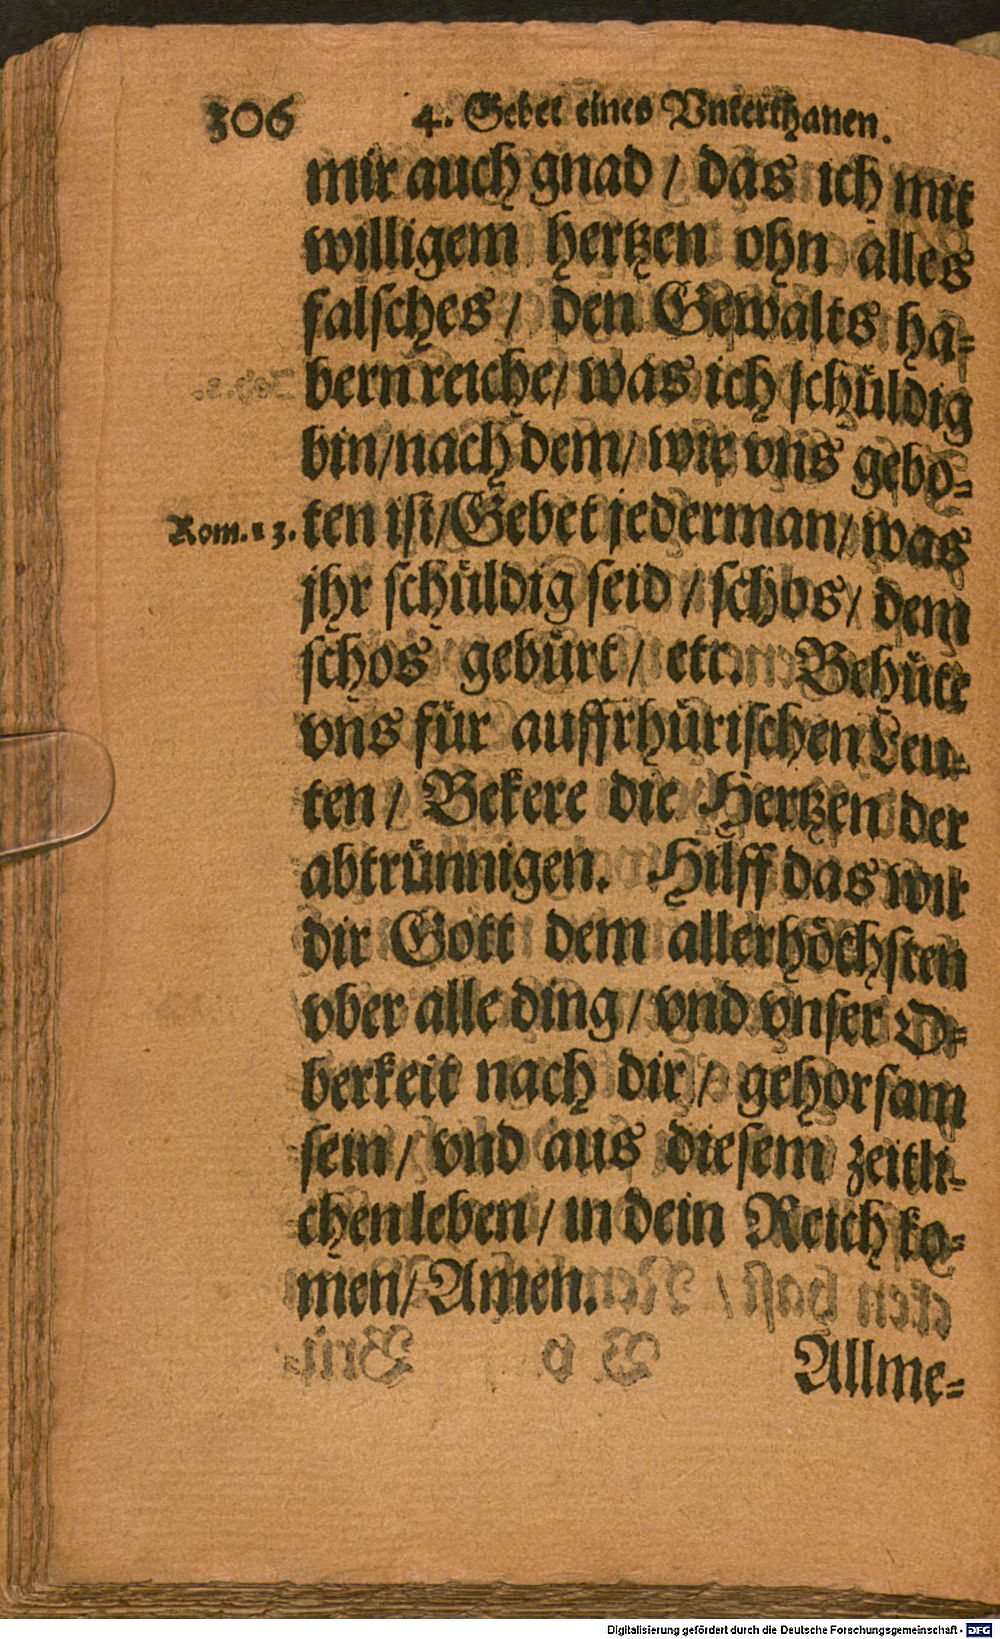 306 4. Gebet eines Vnterthanen.
mir auch gnad / das ich mit
willigem hertzen ohn alles
falsches / den Gewalts ha⸗
bern reiche / was ich schüldig
bin / nach dem / wie vns gebo⸗
Rom. 13. ten ist / Gebet jederman / was
jhr schüldig seid / schos / dem
schos gebürt / etc. Behüte
vns für auffrhürischen Leu⸗
ten / Bekere die Hertzen der
abtrünnigen. Hilff das wir
dir Gott dem allerhöchsten
vber alle ding / vnd vnser O⸗
berkeit nach dir / gehorsam
sein / vnd aus diesem zeitli⸗
chen leben / in dein Reich ko⸗
men / Amen.
Allme⸗
Digitalisierung gefördert durch die Deutsche Forschungsgemeinschaft - DFG